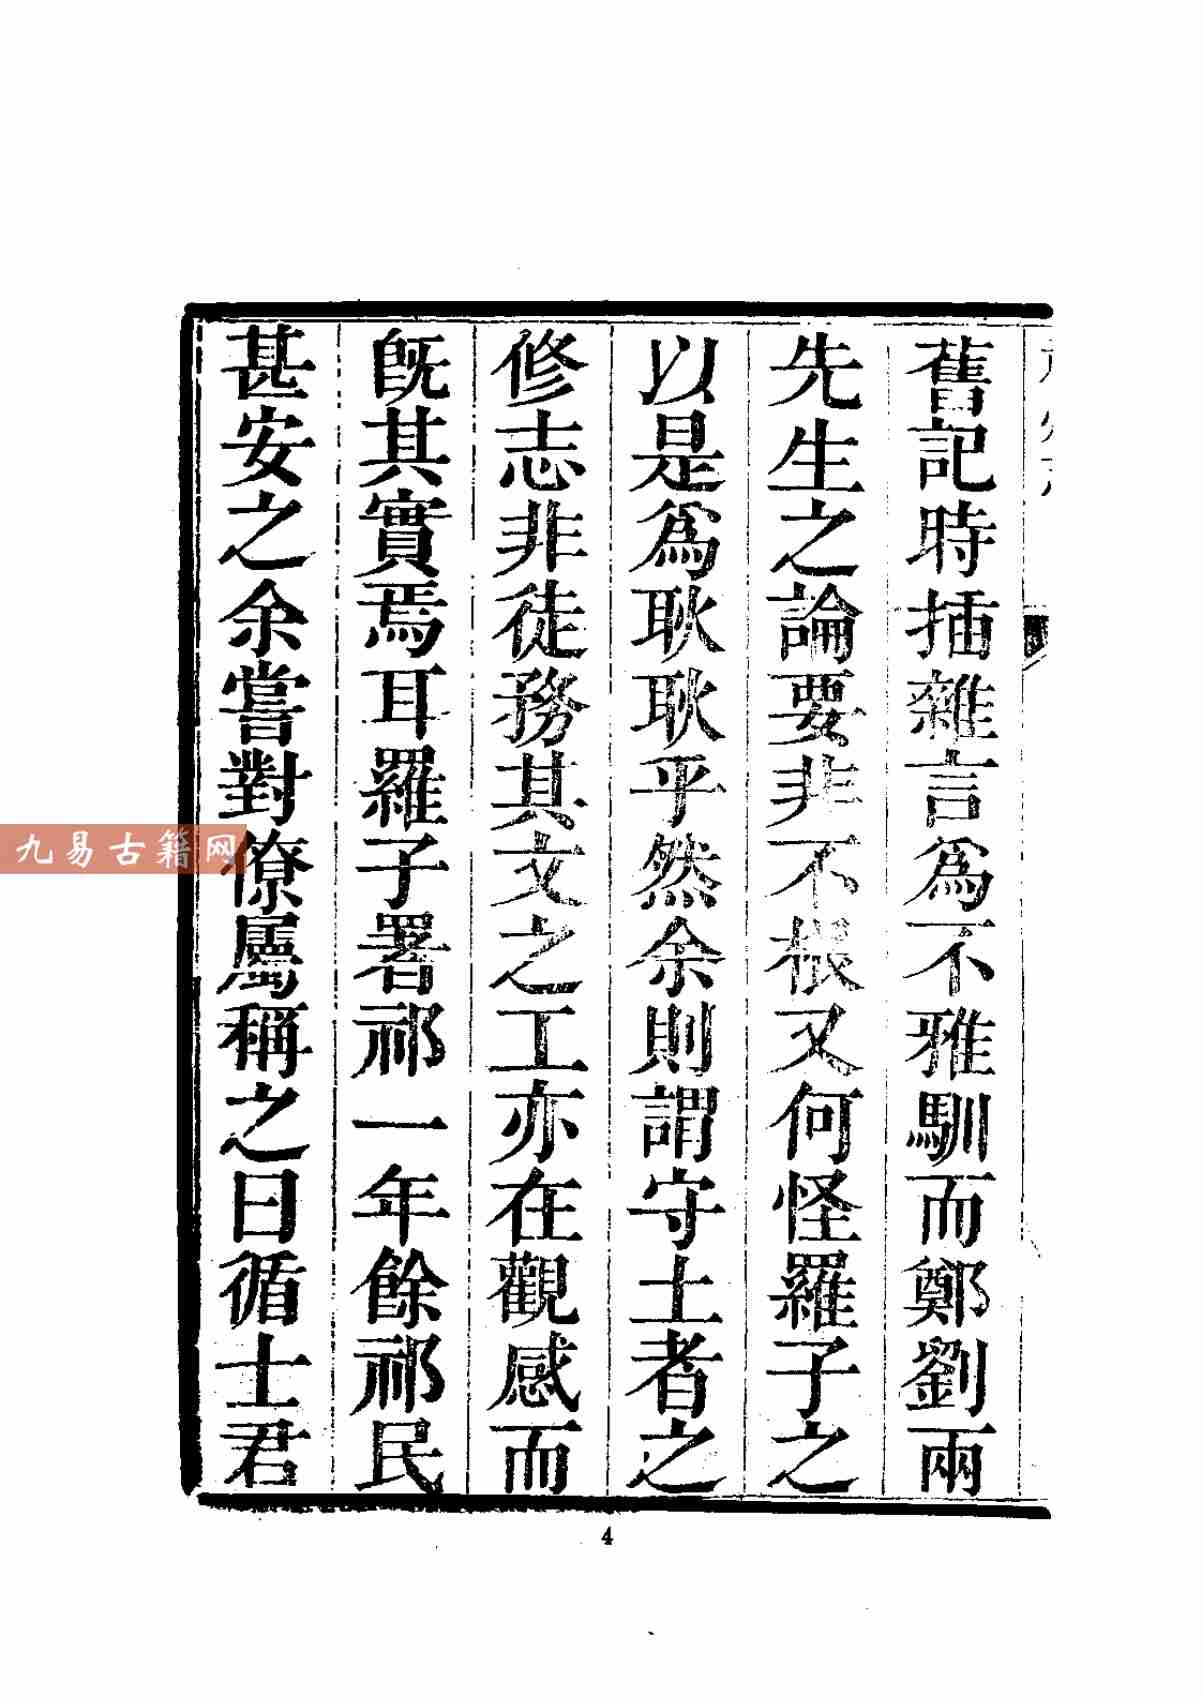 舊記時插雜言爲不雅馴而鄭劉兩
先生之論要非不根又何怪羅子之
以是爲耿耿乎然余則謂守土者之
修志非徒務其文之工亦在觀感而
旣其實焉耳羅子署祁一年餘祁民
甚安之余嘗對僚屬稱之曰循士君
九易古籍网
4